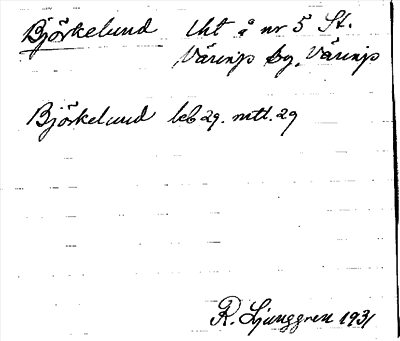 Björkelund Uht å nr 5 St.
Väringe by, Väringe
Björkelund leb 29. mtl. 29
R. Ljunggren 1931